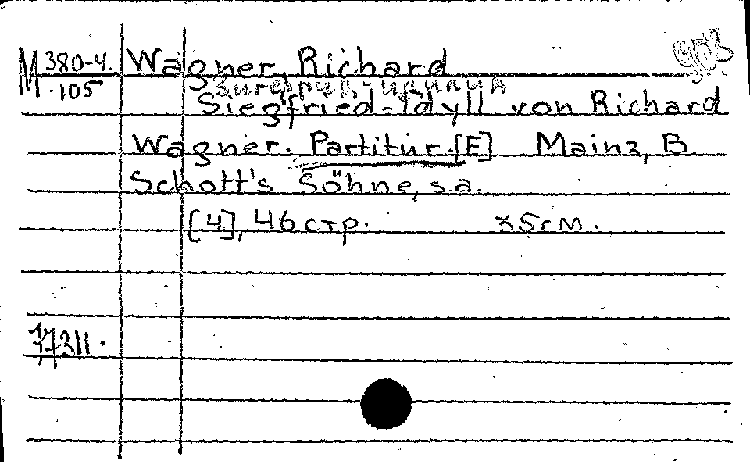 M 380-4. Wagner, Richard
105
Siegfried-Idyll von Richard
Wagner. Partitur. [E] Mainz, B.
Schott's Söhne, s.a.
[4], 46 стр. 25 см.